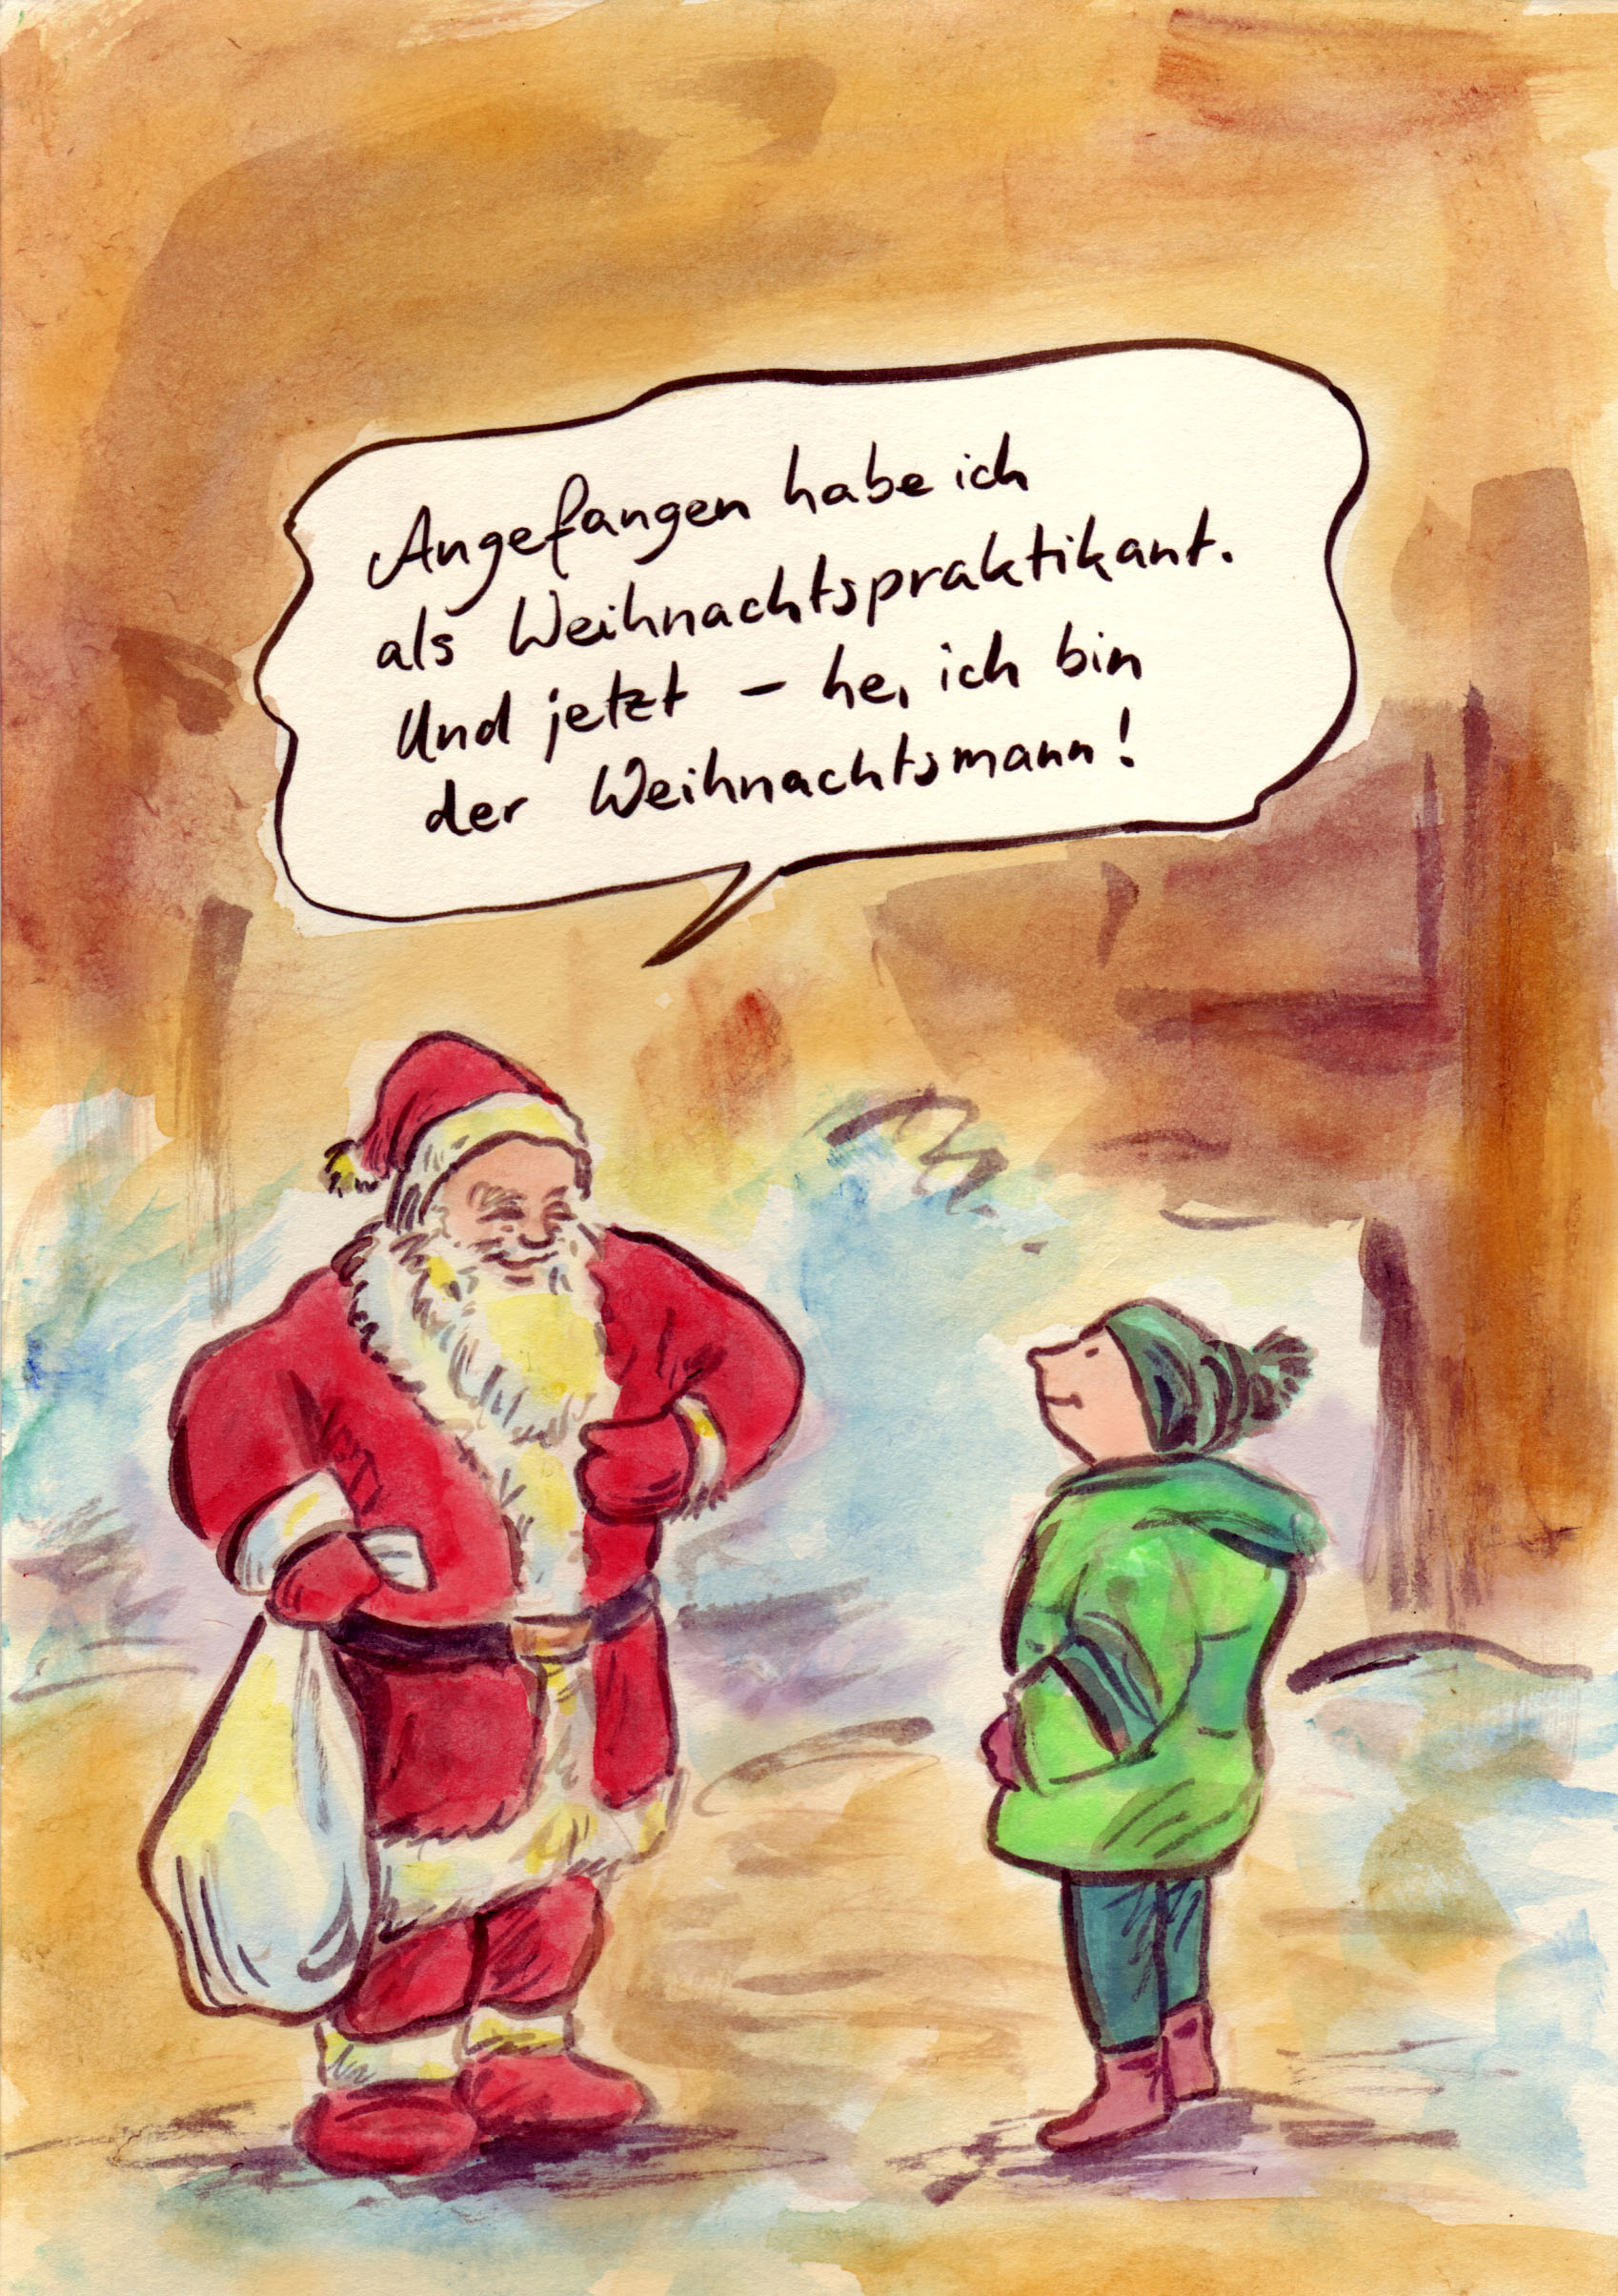 Angefangen habe ich
als Weihnachtspraktikant.
Und jetzt – he, ich bin
der Weihnachtsmann!